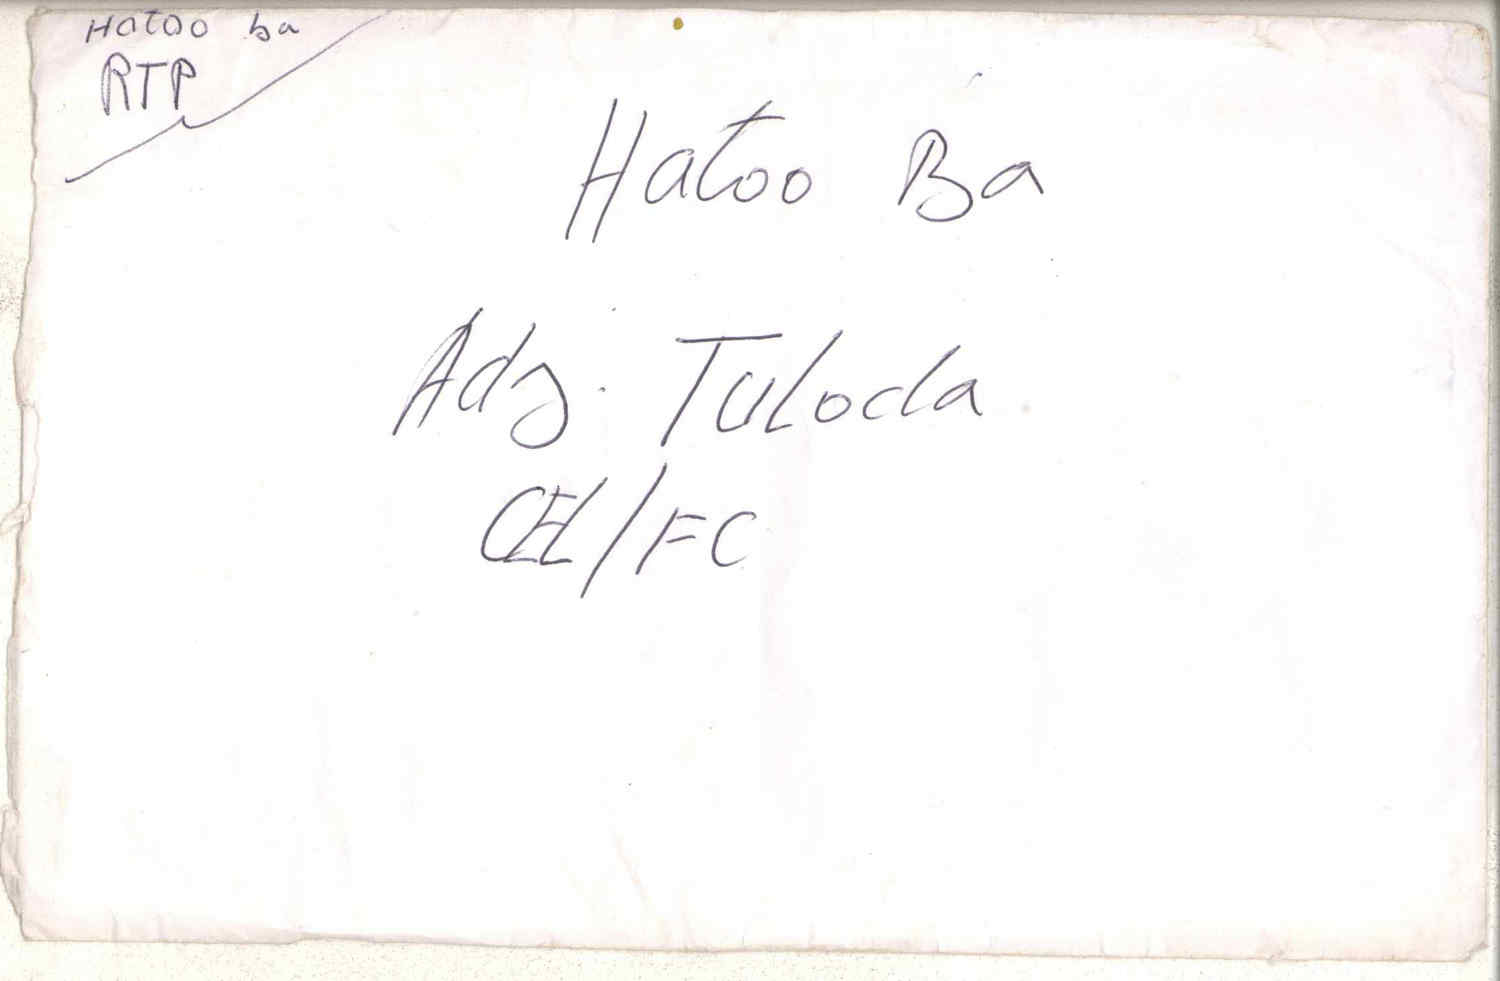 Hatoo ba
RTP
Hatoo Ba
Adj. Tuloda
CEL/FC